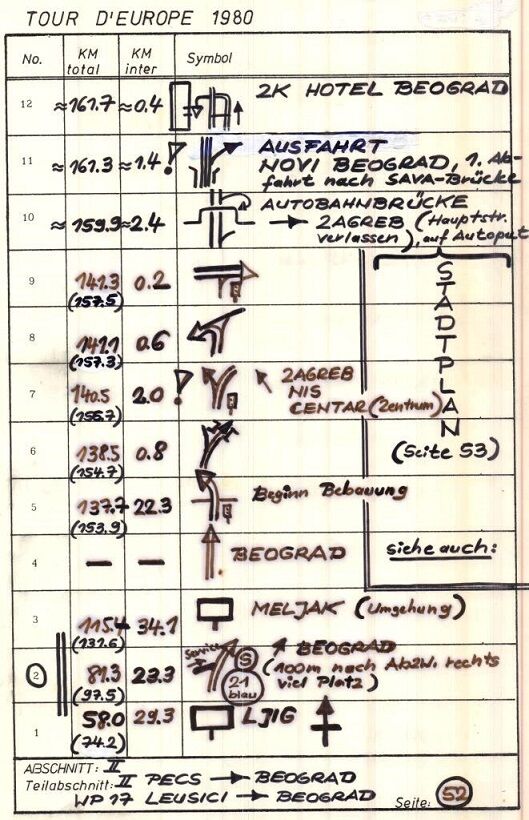 TOUR D'EUROPE 1980
No. KM total KM inter Symbol
12 ≈161.7 ≈0.4 2K HOTEL BEOGRAD
11 ≈161.3 ≈1.4 ! AUSFAHRT
NOVI BEOGRAD, 1. Ab-
fahrt nach SAVA-Brücke
10 ≈159.9 ≈2.4 AUTOBAHNBRÜCKE
→ ZAGREB (Hauptstr.
verlassen), auf Autoput
9 141.3 0.2
(157.5)
8 141.1 0.6
(157.3)
7 140.5 2.0 ! ZAGREB
NIS
CENTAR (Zentrum)
(156.7)
STADTPLAN
(Seite 53)
siehe auch:
6 138.5 0.8
(154.7)
5 137.7 22.3 Beginn Bebauung
(153.9)
4 — — BEOGRAD
3 115.4 34.1 MELJAK (Umgehung)
(131.6)
2 81.3 23.3 Service S 21 blau BEOGRAD
(100m nach Abzw. rechts
viel Platz)
(97.5)
1 58.0 29.3 LJIG
(74.2)
ABSCHNITT: II
Teilabschnitt: II PECS → BEOGRAD
WP 17 LEUSICI → BEOGRAD Seite: 52